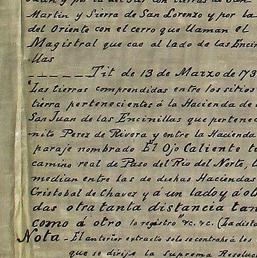 Juan y por la del Sur con tierras de San
Martin y Sierra de San Lorenzo y por la
del Oriente con el cerro que llaman el
Magistral que cae al lado de las Encini
llas
Tit de 13 de Marzo de 173
"Las tierras comprendidas entre los sitios
tierra pertenecientes á la Hacienda de
San Juan de las Encinillas que pertenec
nito Perez de Rivera y entre la Hacienda
paraje nombrado El Ojo Caliente
camino real de Paso del Rio del Norte, t
median entre las de dichas Haciendas
Cristobal de Chavez y á un lado y ó ot
das otra tanta distancia tan
como á otro lo registro "&c. &c. (La disto
Nota - El anterior extracto solo se contrae á los
que se dirije la Suprema Resoluc